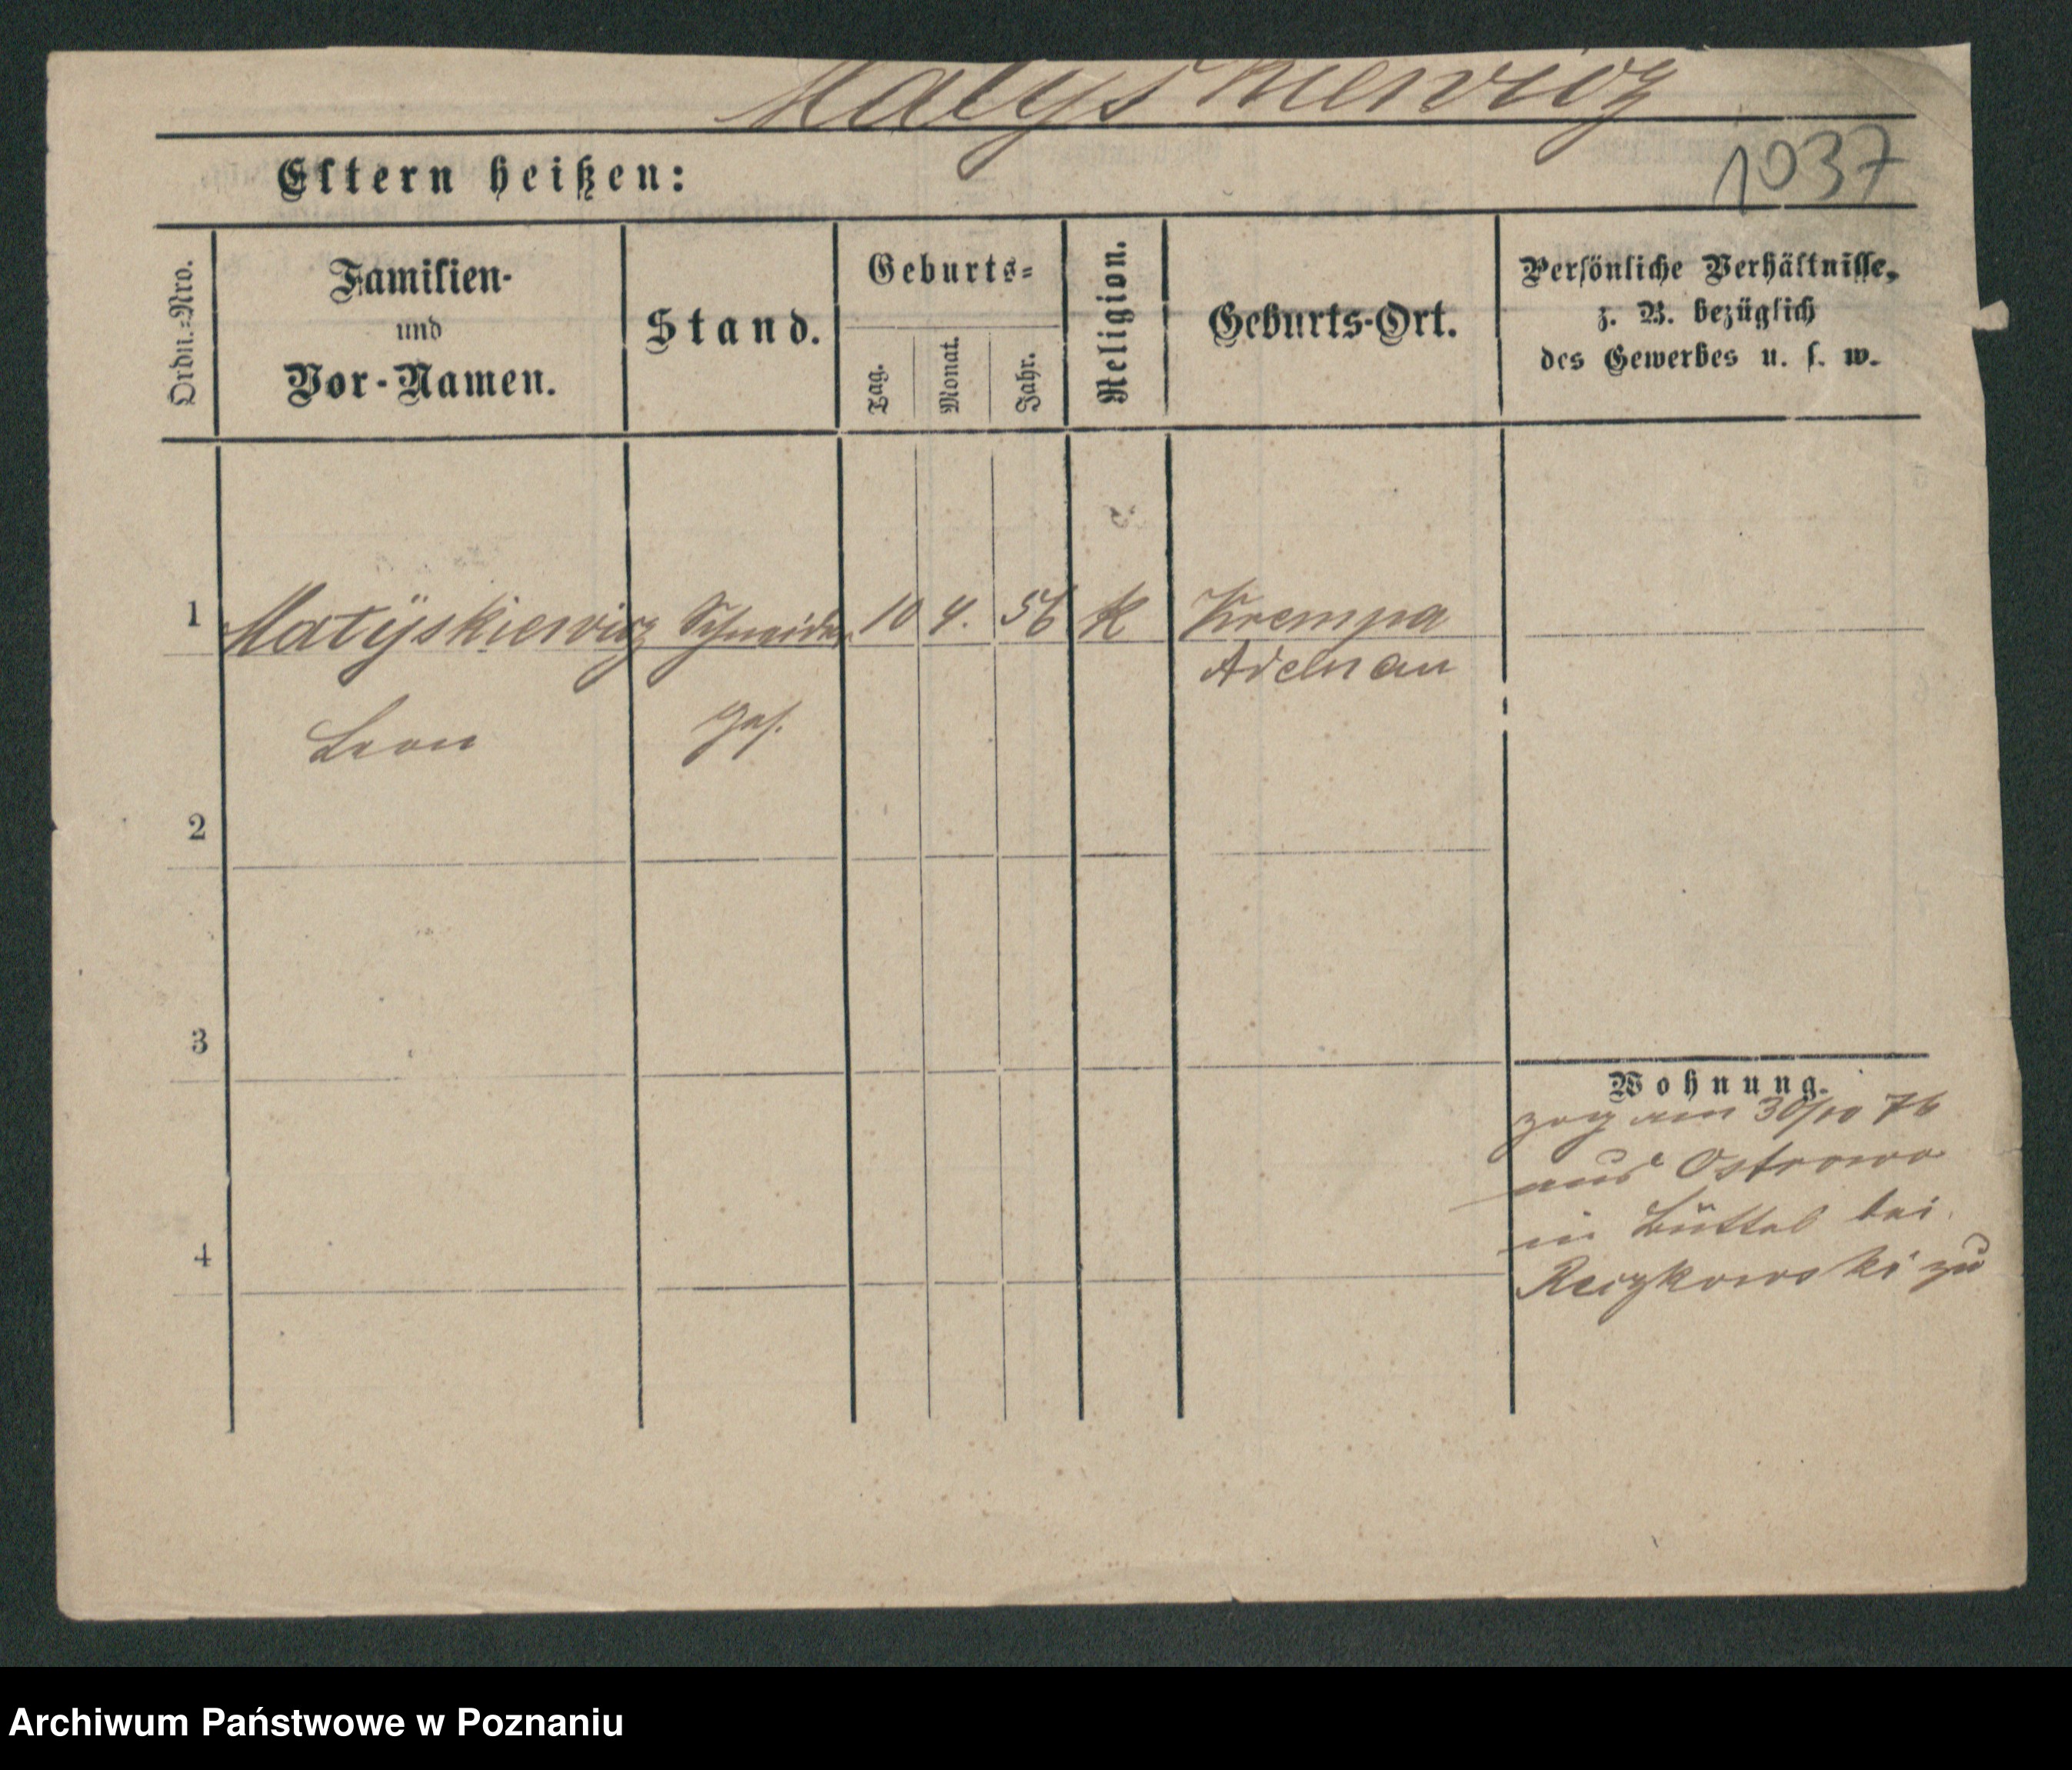 Matyskiewicz
1037
Eltern heißen:
Ordn.=Nro.
Familien-
und
Vor-Namen.
Stand.
Geburts=
Tag.
Monat.
Jahr.
Religion.
Geburts-Ort.
Persönliche Verhältnisse,
z. B. bezüglich
des Gewerbes u. s. w.
1 Matÿskiewicz Schneider 10 4. 56 K Krempa
Adelnau
Leon Ges.
2
3
4
Wohnung.
zog am 30/10 76
aus Ostrowo
in Büttel bei
zu
Archiwum Państwowe w Poznaniu